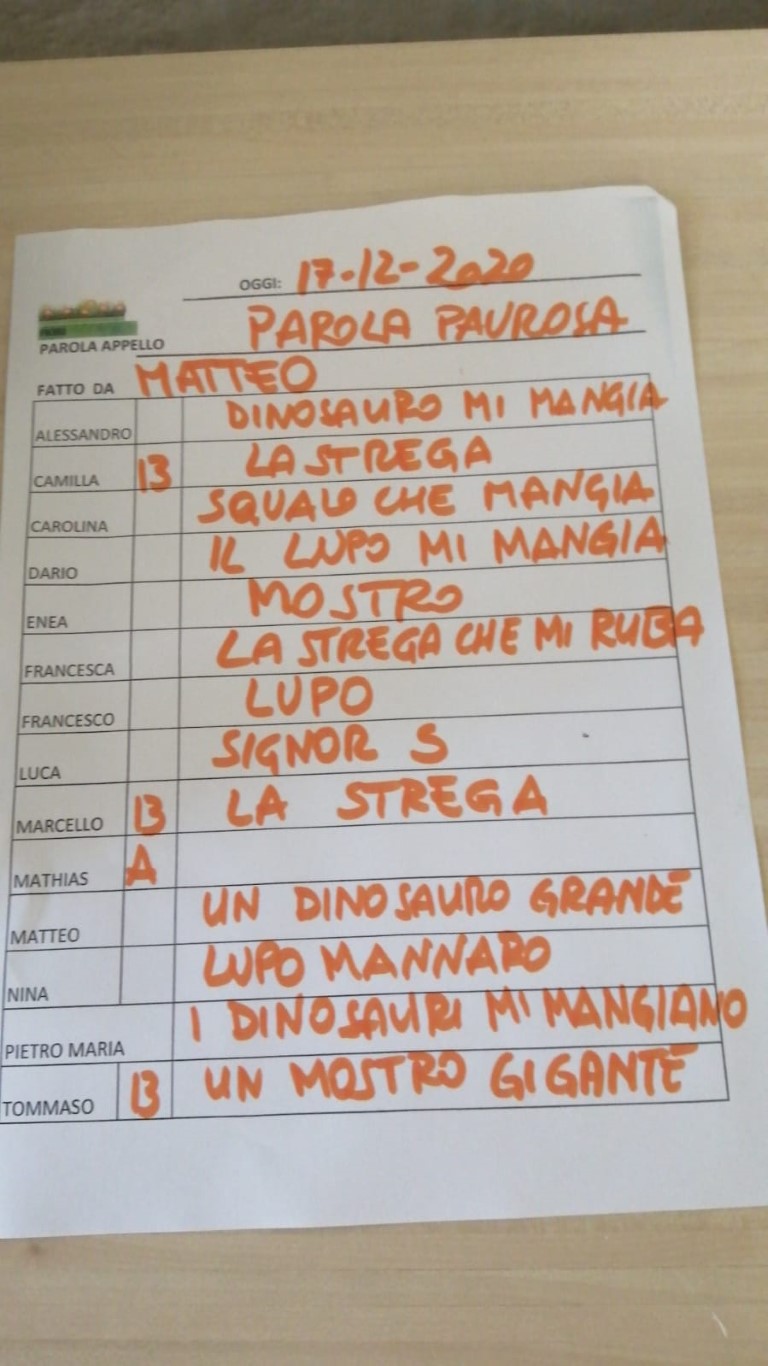 OGGI: 17-12-2020
PAROLA APPELLO PAROLA PAUROSA
FATTO DA MATTEO
ALESSANDRO DINOSAURO MI MANGIA
CAMILLA B LA STREGA
CAROLINA SQUALO CHE MANGIA
DARIO IL LUPO MI MANGIA
ENEA MOSTRO
FRANCESCA LA STREGA CHE MI RUBA
FRANCESCO LUPO
LUCA SIGNOR S
MARCELLO B LA STREGA
MATHIAS A
MATTEO UN DINOSAURO GRANDE
NINA LUPO MANNARO
PIETRO MARIA I DINOSAURI MI MANGIANO
TOMMASO B UN MOSTRO GIGANTE